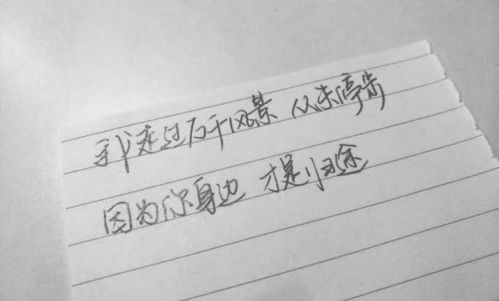 我走过万千风景 从未停步
因为你身边 才是归途